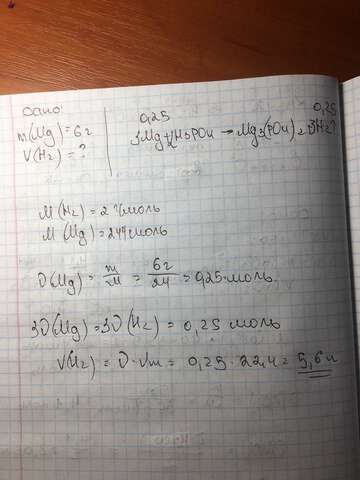 Дано:
m(Mg)=6г
V(H2)=?
0,25 0,25
3Mg+2H3PO4 → Mg3(PO4)2+3H2↑
M(H2)=2г/моль
M(Mg)=24г/моль
ϑ(Mg)=m/M=6г/24=0,25 моль.
3ϑ(Mg)=3ϑ(H2)=0,25 моль
V(H2)=ϑ·Vm=0,25·22,4=5,6л